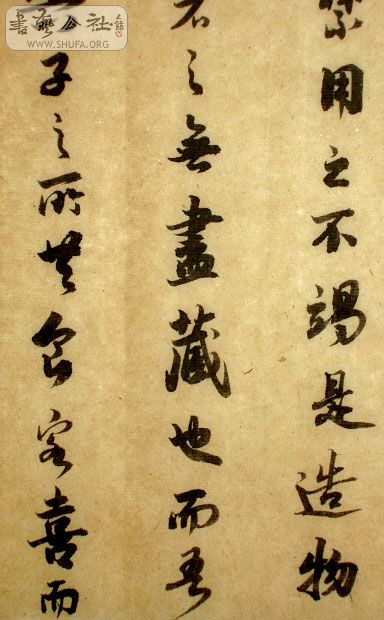 書藝公社
WWW.SHUFA.ORG
禁用之不竭是造物
者之無盡藏也而吾
子之所共食客喜而